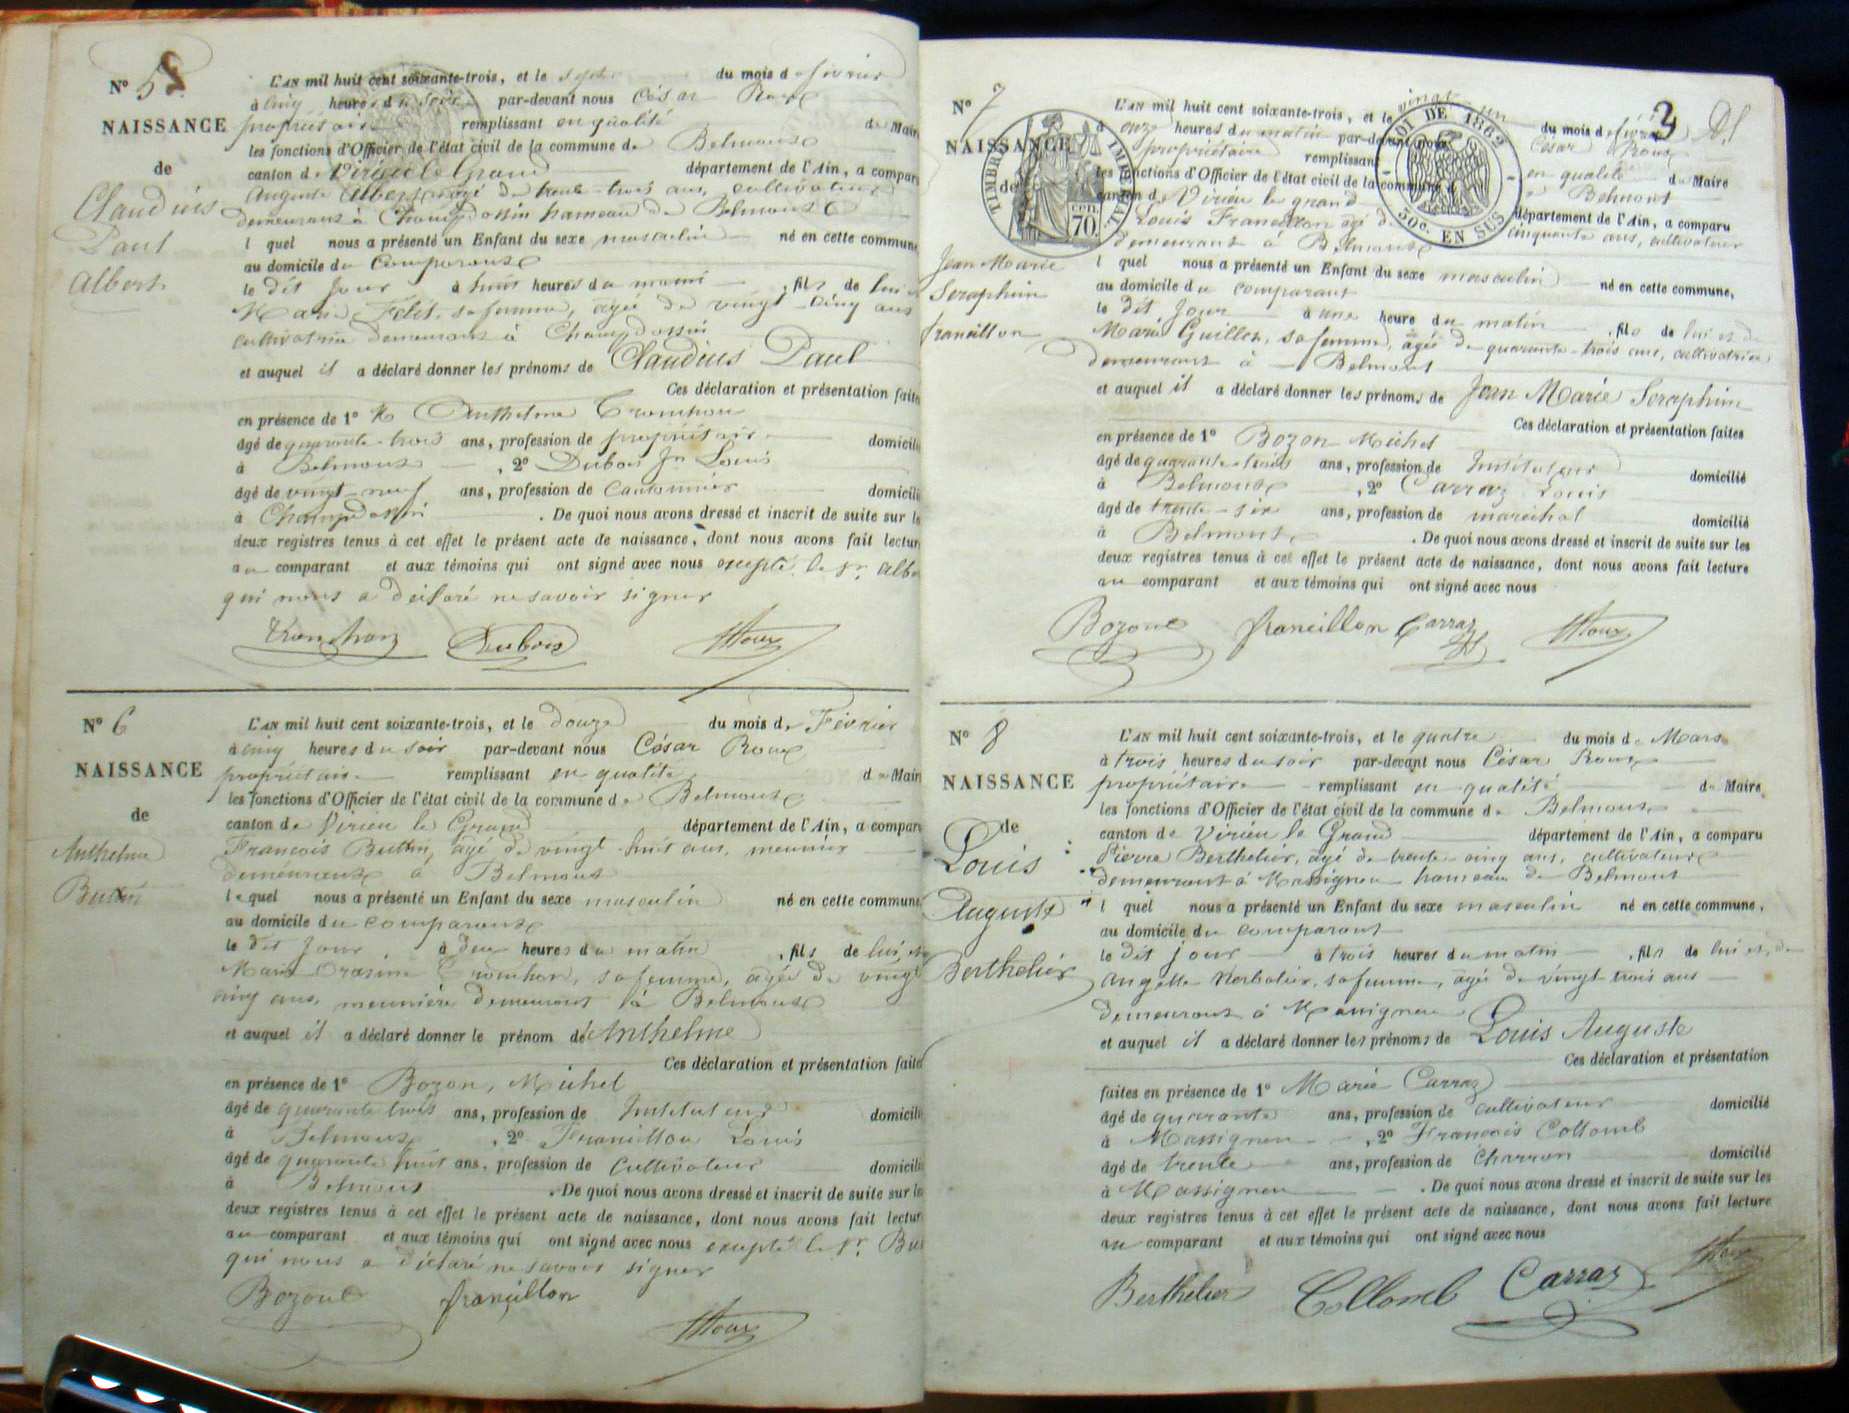 N° 5
NAISSANCE
de
Claudius
Paul
Albert
L'AN mil huit cent soixante-trois, et le sept du mois de février
à cinq heures du soir par-devant nous César Roux
propriétaire remplissant en qualité de Mair
les fonctions d'Officier de l'état civil de la commune de Belmont
canton de Virieu le Grand département de l'Ain, a compar
Auguste Albert, agé de trente-trois ans, cultivateur
demeurant à Champdossin hameau de Belmont
l quel nous a présenté un Enfant du sexe masculin né en cette commune
au domicile du comparant
le dit jour à huit heures du matin , fils de lui e
Marie Félis, sa femme, agée de vingt-cinq ans
cultivatrice demeurant à Champdossin
et auquel il a déclaré donner les prénoms de Claudius Paul
Ces déclaration et présentation faite
en présence de 1° Anthelme Tronchon
âgé de quarante-trois ans, profession de propriétaire domicili
à Belmont , 2° Dubois Jn Louis
âgé de vingt-neuf ans, profession de cantonnier domicili
à Champdossin . De quoi nous avons dressé et inscrit de suite sur le
deux registres tenus à cet effet le présent acte de naissance, dont nous avons fait lectur
au comparant et aux témoins qui ont signé avec nous excepté le Sr. Albe
qui nous a déclaré ne savoir signer
Tronchon Dubois Roux
N° 6
NAISSANCE
de
Anthelme
Buttin
L'AN mil huit cent soixante-trois, et le douze du mois de Février
à cinq heures du soir par-devant nous César Roux
propriétaire remplissant en qualité de Mair
les fonctions d'Officier de l'état civil de la commune de Belmont
canton de Virieu le Grand département de l'Ain, a compar
François Buttin, agé de vingt-huit ans, meunier
demeurant à Belmont
lequel nous a présenté un Enfant du sexe masculin né en cette commune
au domicile du comparant
le dit jour à deux heures du matin , fils de lui, et
Marie Tronchon, sa femme, agée de vingt
cinq ans, meunière demeurant à Belmont
et auquel il a déclaré donner le prénom de Anthelme
Ces déclaration et présentation faite
en présence de 1° Bozon, Michel
âgé de quarante trois ans, profession de Instituteur domicili
à Belmont , 2° Francillon Louis
âgé de quarante huit ans, profession de Cultivateur domicili
à Belmont . De quoi nous avons dressé et inscrit de suite sur le
deux registres tenus à cet effet le présent acte de naissance, dont nous avons fait lectur
au comparant et aux témoins qui ont signé avec nous excepté le Sr. But
qui nous a déclaré ne savoir signer
Bozon francillon Roux
3
N° 7
NAISSANCE
de
Jean Marie
Seraphin
francillon
TIMBRE IMPERIAL
70 cen.
LOI DE 1862
50c. EN SUS
L'AN mil huit cent soixante-trois, et le vingt un du mois de février
à onze heures du matin par-devant nous César Roux
propriétaire remplissant en qualité de Maire
les fonctions d'Officier de l'état civil de la commune de Belmont
canton de Virieu le grand département de l'Ain, a comparu
Louis Francillon agé de cinquante ans, cultivateur
demeurant à Belmont
l quel nous a présenté un Enfant du sexe masculin né en cette commune,
au domicile du comparant
le dit jour à une heure du matin , fils de lui et de
Marie Guillon, sa femme, agée de quarante-trois ans, cultivatrice
demeurant à Belmont
et auquel il a déclaré donner les prénoms de Jean Marie Seraphin
Ces déclaration et présentation faites
en présence de 1° Bozon Michel
âgé de quarante trois ans, profession de Instituteur domicilié
à Belmont , 2° Carraz Louis
âgé de trente-six ans, profession de maréchal domicilié
à Belmont . De quoi nous avons dressé et inscrit de suite sur les
deux registres tenus à cet effet le présent acte de naissance, dont nous avons fait lecture
au comparant et aux témoins qui ont signé avec nous
Bozon francillon Carraz Roux
N° 8
NAISSANCE
de
Louis
Auguste
Berthelier
L'AN mil huit cent soixante-trois, et le quatre du mois de Mars
à trois heures du soir par-devant nous César Roux
propriétaire remplissant en qualité de Maire
les fonctions d'Officier de l'état civil de la commune de Belmont
canton de Virieu le Grand département de l'Ain, a comparu
Pierre Berthelier, agé de trente-cinq ans, cultivateur
demeurant à Massignieu hameau de Belmont
l quel nous a présenté un Enfant du sexe masculin né en cette commune,
au domicile du comparant
le dit jour à trois heures du matin , fils de lui et, de
Angelle sa femme, agée de vingt trois ans
demeurant à Massignieu
et auquel il a déclaré donner les prénoms de Louis Auguste
Ces déclaration et présentation
faites en présence de 1° Marie Carraz
âgé de quarante ans, profession de cultivateur domicilié
à Massignieu , 2° François Collomb
âgé de trente ans, profession de Charron domicilié
à Massignieu . De quoi nous avons dressé et inscrit de suite sur les
deux registres tenus à cet effet le présent acte de naissance, dont nous avons fait lecture
au comparant et aux témoins qui ont signé avec nous
Berthelier Collomb Carraz Roux